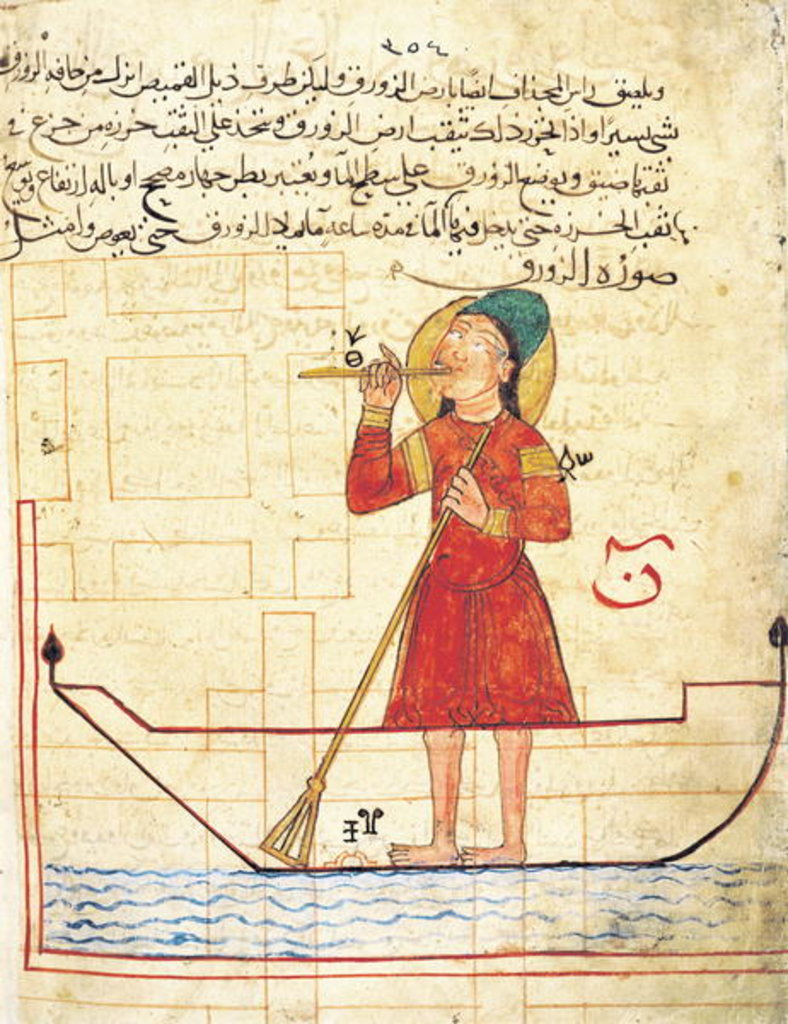 ٣٥٤
ويلصق راس المجذاف ايضًا بارض الزورق وليكن طرف ذيل القميص انزل من حافه الزورق
شي يسيرًا واذا انحرز ذلك يثقب ارض الزورق ويتخذ على الثقب خرزه من جزع في
ثقبها ضيق ويوضع الزورق على سطح الما ويعتبر بطرجهاره مصحح او باله ارتفاع
ثقب الخرزه حتى يدخل فيها الما في مده ساعه ما يملا الزورق حتى يغوص وامثل
صوره الزورق
ن